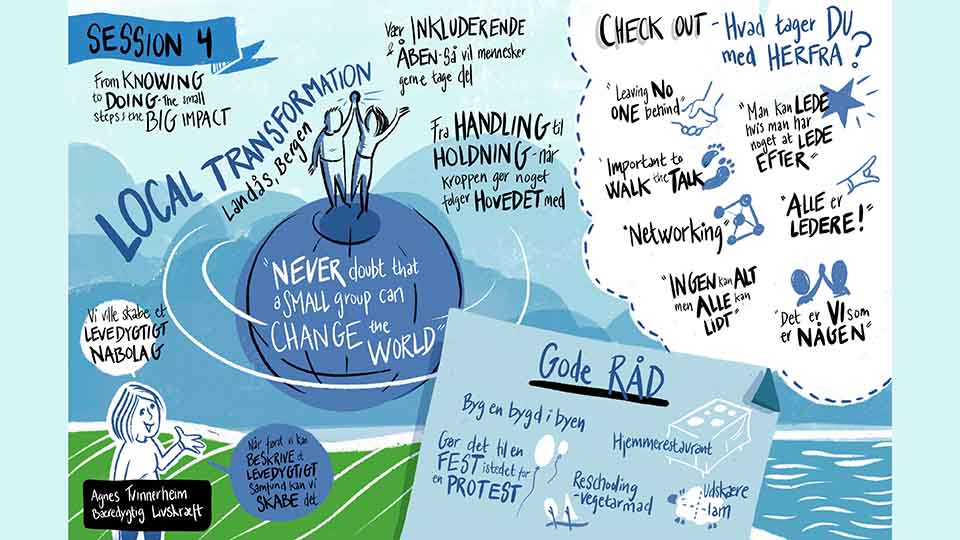 SESSION 4
From KNOWING
to DOING - the small
steps & the BIG IMPACT
LOCAL TRANSFORMATION
Landås, Bergen
Vær INKLUDERENDE
& ÅBEN - Så vil mennesker
gerne tage del
Fra HANDLING til
HOLDNING - når
kroppen gør noget
følger HOVEDET med
"NEVER doubt that
a SMALL group can
CHANGE the
WORLD"
Vi ville skabe et
LEVEDYGTIGT
NABOLAG
Når først vi kan
BESKRIVE et
LEVEDYGTIGT
Samfund kan vi
SKABE det
Agnes Tvinnerheim
Bæredygtig Livskræft
CHECK OUT - Hvad tager DU
med HERFRA?
"Leaving NO
ONE behind"
"Man kan LEDE
hvis man har
noget at LEDE
EFTER"
"Important to
WALK the TALK"
"Networking"
"ALLE er
LEDERE!"
"INGEN kan ALT
men ALLE kan
LIDT"
"Det er VI som
er NÅGEN"
Gode RÅD
Byg en bygd i byen
Gør det til en
FEST istedet for
en PROTEST
Hjemmerestaurant
Reschooling
- vegetarmad
Udskære
lam